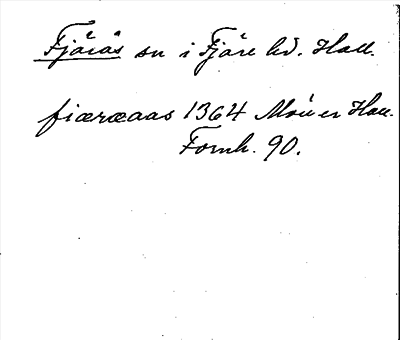 Fjärås sn i Fjäre hd. Hall.
fiæræaas 1364 Mon̄er Hall.
Fornh. 90.